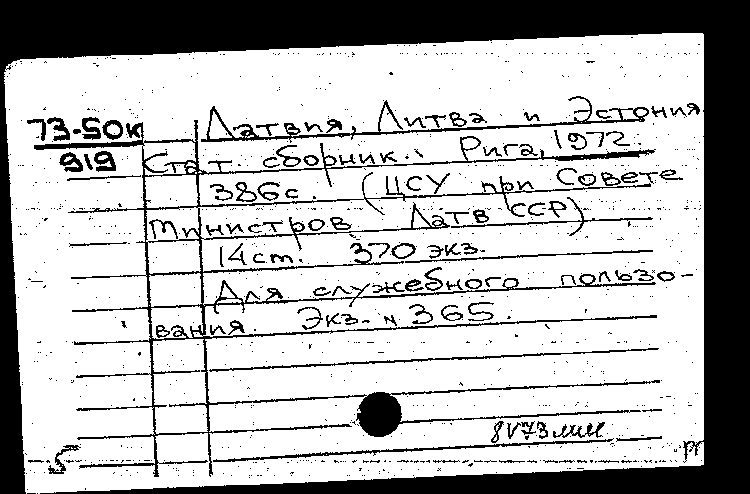 73-50к
919
Латвия, Литва и Эстония
Стат. сборник. Рига, 1972
386с. (ЦСУ при Совете
Министров Латв ССР)
14 ст. 370 экз.
Для служебного пользо-
вания. Экз. № 365.
8 V 73
5